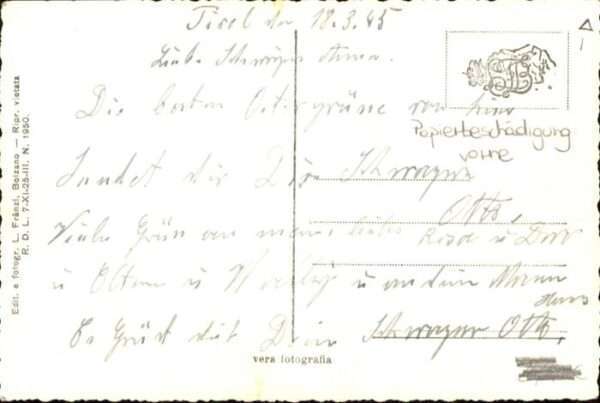 Tirol den 18.3.45
Liebe Schwägerin Anna.
Die besten Ostergrüße von hier
Papierbeschädigung
vorne
Sendet dir Dein Schwager
Otto.
Viele Grüß an meine liebe Rosa u Dori
u Eltern u u an dein Mann
Hans
Es Grüst dich Dein Schwager Otto.
vera fotografia
Edit. e fotogr. L. Fränzl, Bolzano — Ripr. vietata
R. D. L. 7-XI-25-III. N. 1950.